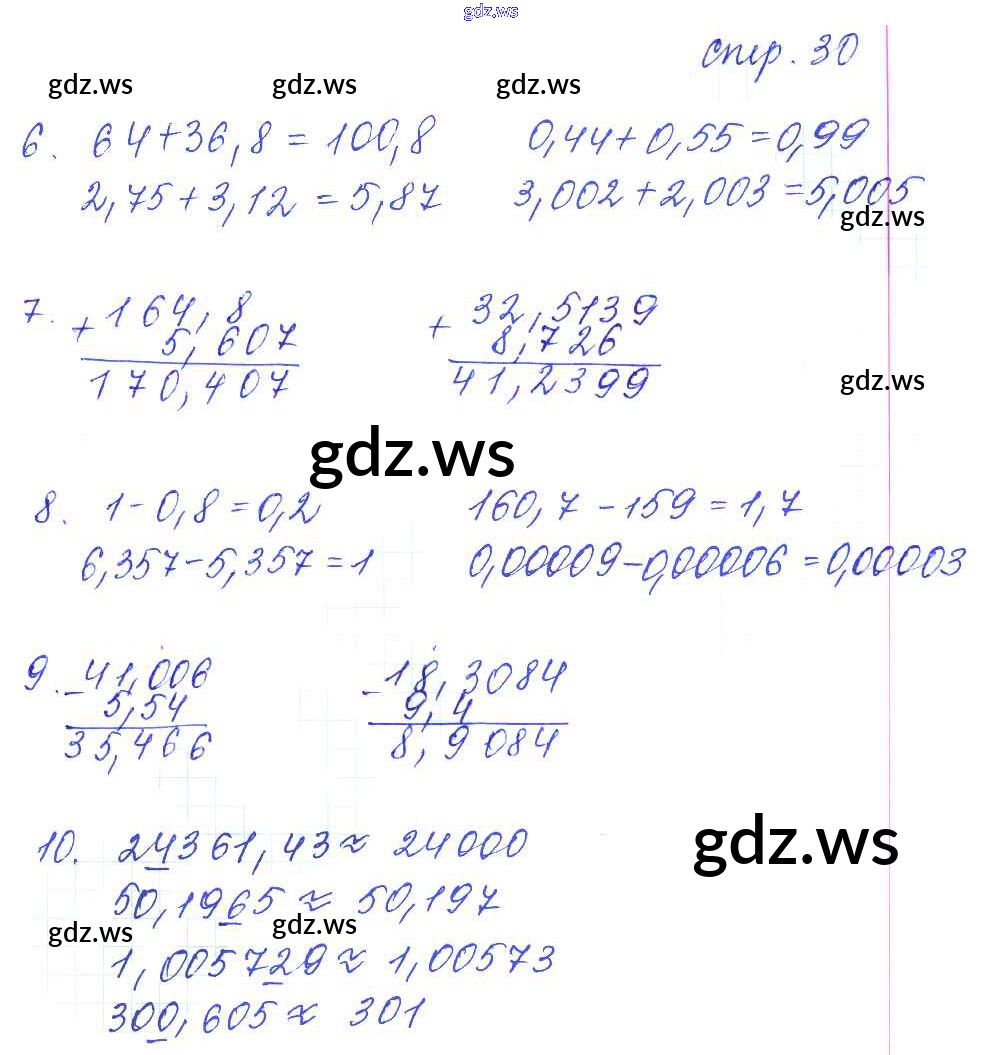 gdz.ws
стр. 30
gdz.ws gdz.ws gdz.ws
6. 64+36,8 = 100,8 0,44+0,55=0,99
2,75+3,12 = 5,87 3,002+2,003 =5,005
gdz.ws
7. + 164,8 + 32,5139
5,607 8,726
170,407 41,2399
gdz.ws
gdz.ws
8. 1-0,8=0,2 160,7-159=1,7
6,357-5,357=1 0,00009-0,00006=0,00003
9. - 41,006 - 18,3084
5,54 9,4
35,466 8,9084
10. 24361,43≈ 24000
gdz.ws
50,1965 ≈ 50,197
gdz.ws gdz.ws
1,005729≈ 1,00573
300,605≈ 301